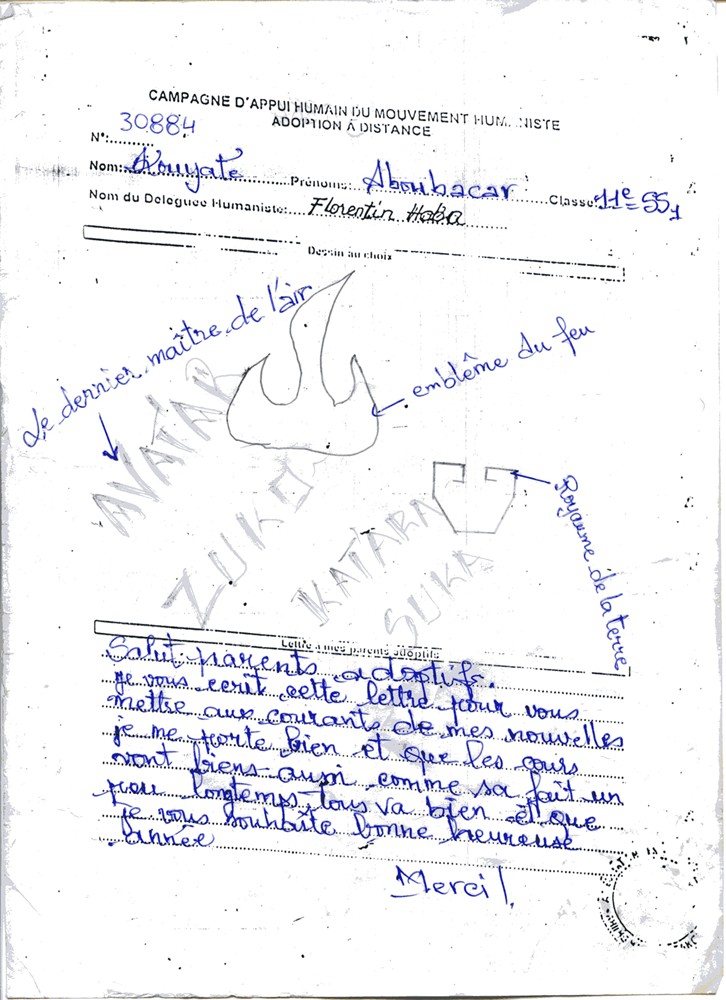 CAMPAGNE D'APPUI HUMAIN DU MOUVEMENT HUM NISTE
ADOPTION À DISTANCE
N°: 30884
Nom: Kouyate Prénoms: Aboubacar Classe: 11e SS1
Nom du Deleguee Humaniste: Florentin Haba
Dessin au choix
Le dernier maître de l'air
emblême du feu
AVATAR
ZUKO
KATARA
SUKA
Royaume de la terre
Lettre à mes parents adoptifs
Salut parents adoptifs.
je vous ecrit cette lettre pour vous
mettre aux courants de mes nouvelles
je me porte bien et que les cours
vont biens aussi comme sa fait un
peu longtemps tous va bien et que
je vous souhaite bonne heureuse
année
Merci!